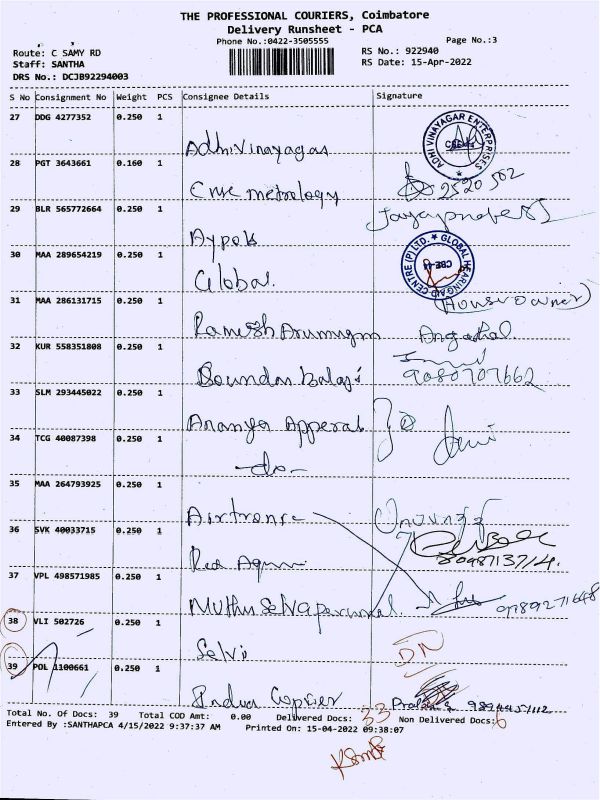 THE PROFESSIONAL COURIERS, Coimbatore
Delivery Runsheet - PCA
Phone No.:0422-3505555
Page No.:3
Route: C SAMY RD
RS No.: 922940
Staff: SANTHA
RS Date: 15-Apr-2022
DRS No.: DCJB92294003
S No Consignment No Weight PCS Consignee Details Signature
27 DDG 4277352 0.250 1
Adhivinayagas
ADHI VINAYAGAR ENTERPRISES
28 PGT 3643661 0.160 1
Cmc metrology
2520 502
29 BLR 565772664 0.250 1
30 MAA 289654219 0.250 1
Global.
GLOBAL HEARING AID CENTRE (P) LTD.
31 MAA 286131715 0.250 1
(House owner)
Ramesh Arumugm
32 KUR 558351808 0.250 1
Soundar Balaji
9080707662
33 SLM 293445022 0.250 1
Ananya Apperal
34 TCG 40087398 0.250 1
-do-
35 MAA 264793925 0.250 1
36 SVK 40033715 0.250 1
37 VPL 498571985 0.250 1
Muthu Selvaperumal.
38 VLI 502726 0.250 1
Selvi
DN
39 POL 1100661 0.250 1
Total No. Of Docs: 39 Total COD Amt: 0.00 Delivered Docs: 33 Non Delivered Docs: 6
Entered By :SANTHAPCA 4/15/2022 9:37:37 AM Printed On: 15-04-2022 09:38:07